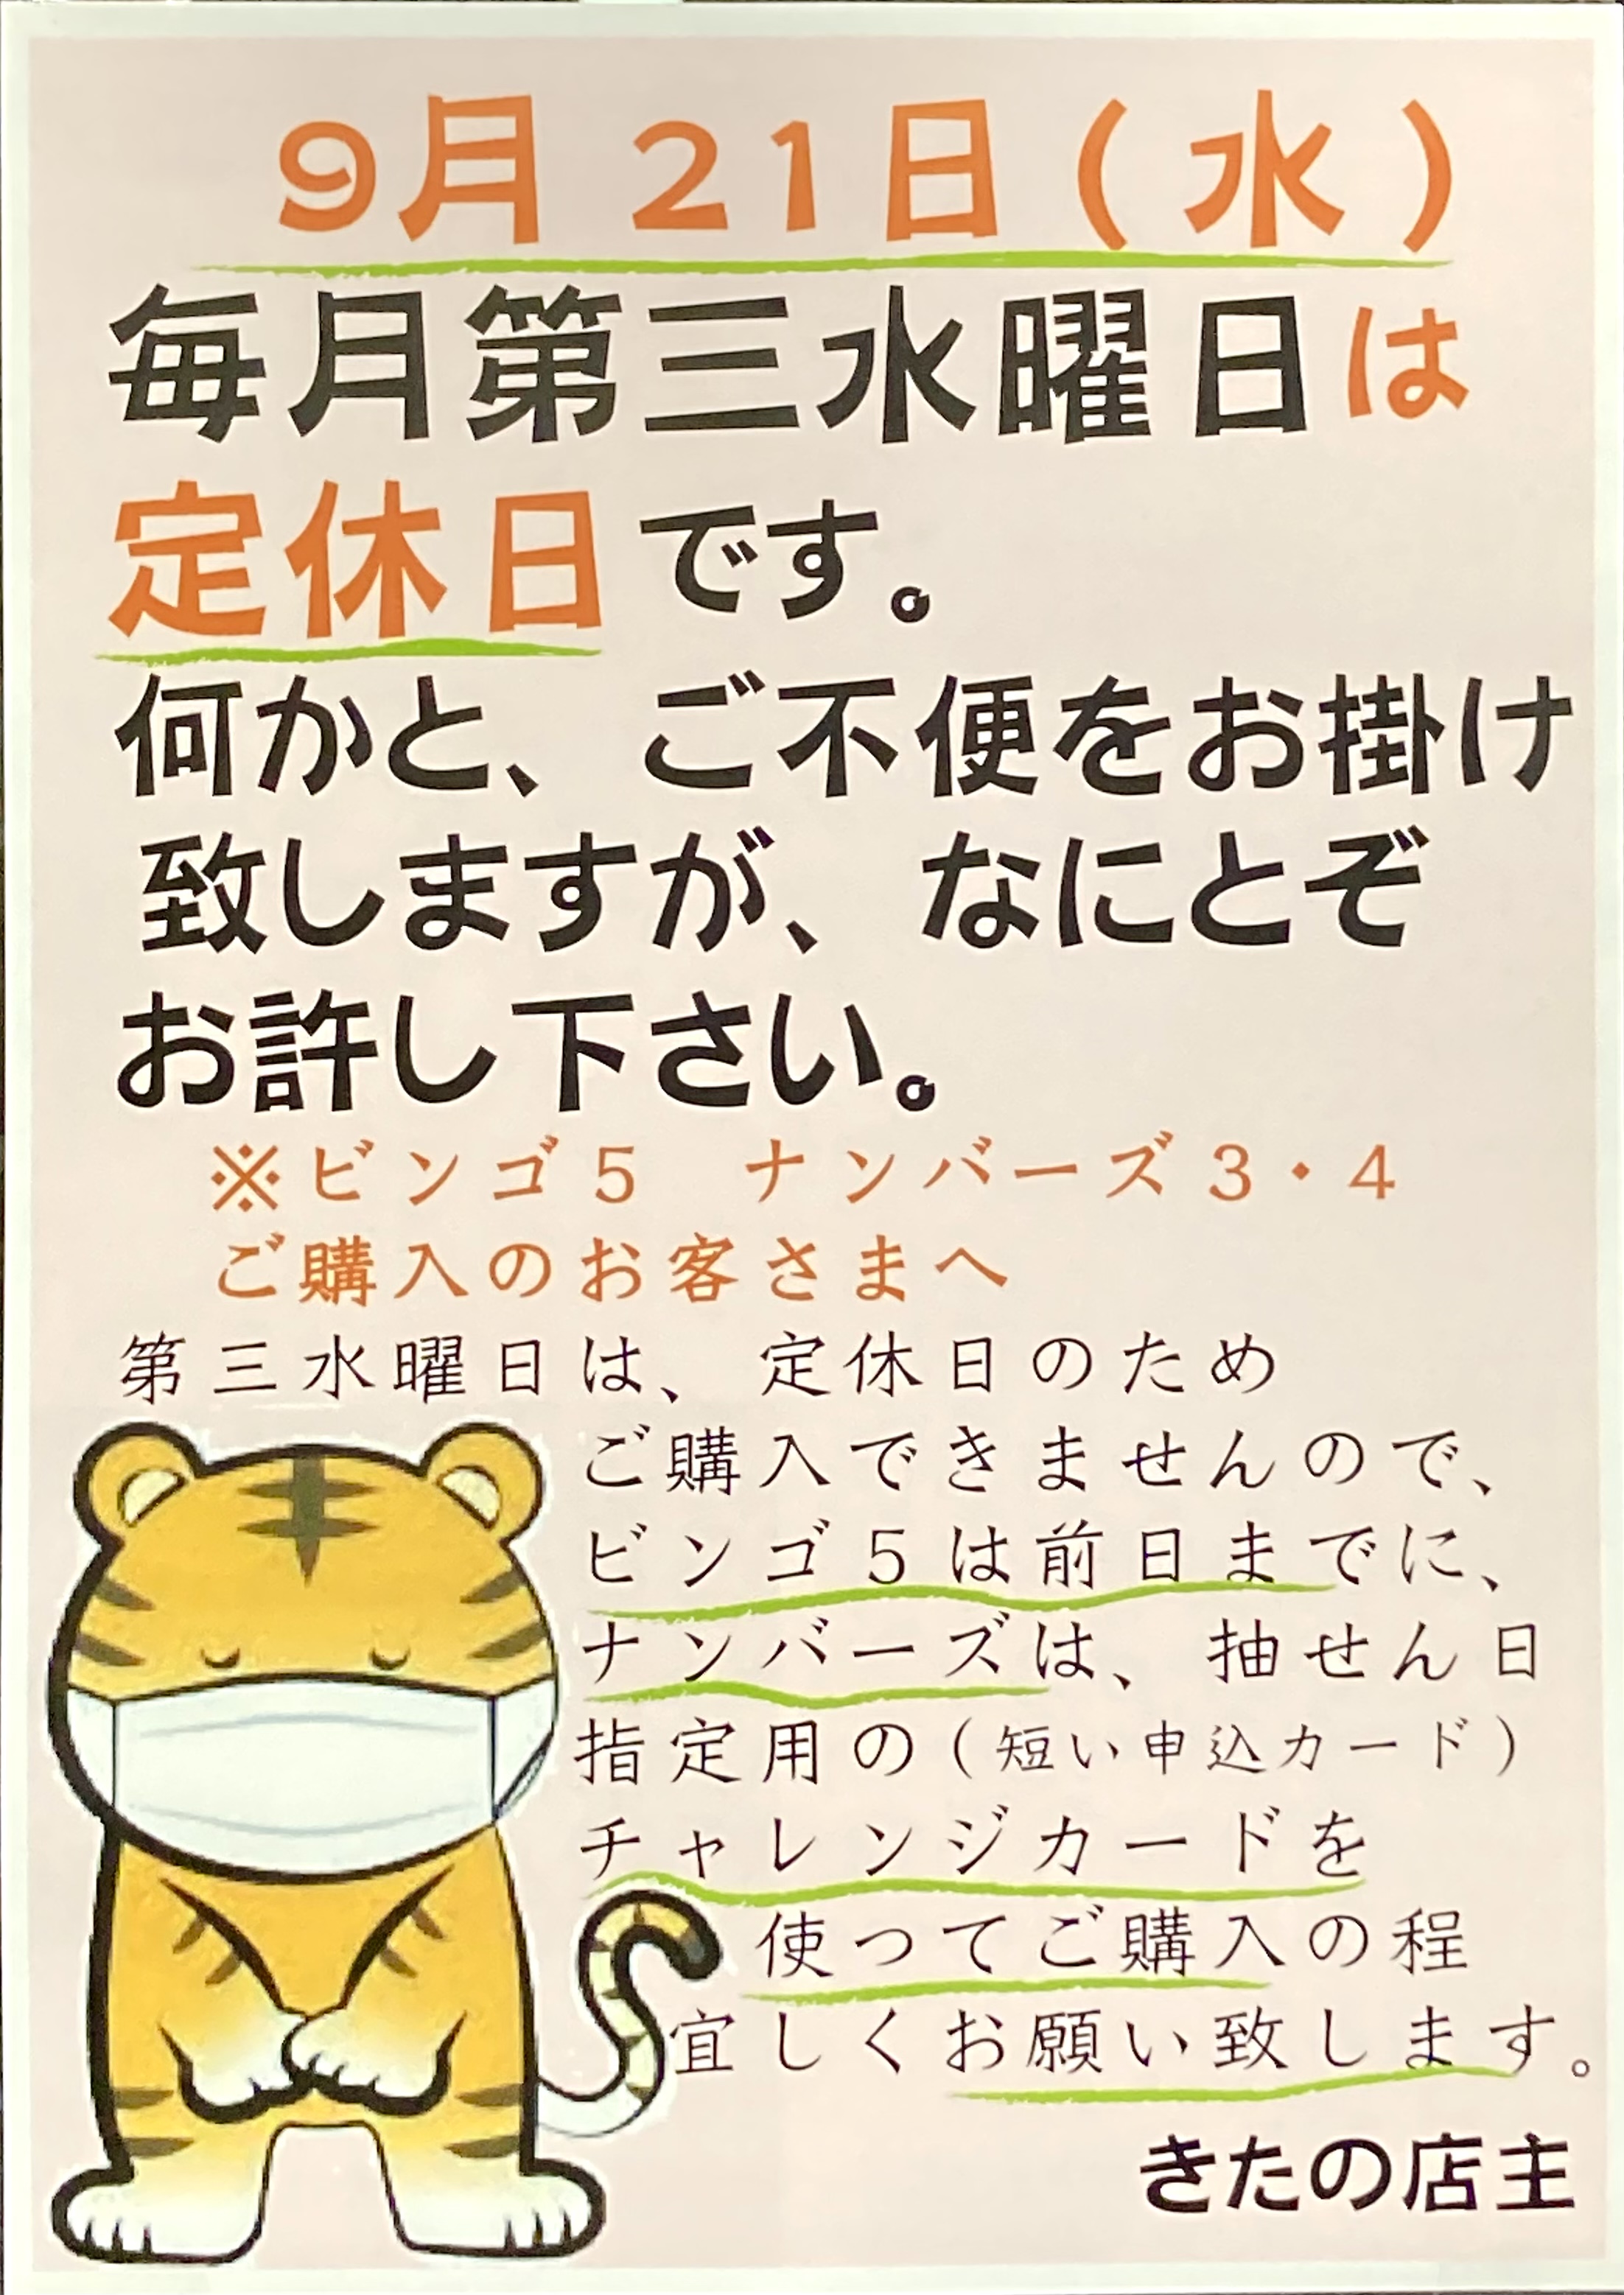 9月21日(水)
毎月第三水曜日は
定休日です。
何かと、ご不便をお掛け
致しますが、なにとぞ
お許し下さい。
※ビンゴ5　ナンバーズ3・4
ご購入のお客さまへ
第三水曜日は、定休日のため
ご購入できませんので、
ビンゴ5は前日までに、
ナンバーズは、抽せん日
指定用の(短い申込カード)
チャレンジカードを
使ってご購入の程
宜しくお願い致します。
きたの店主